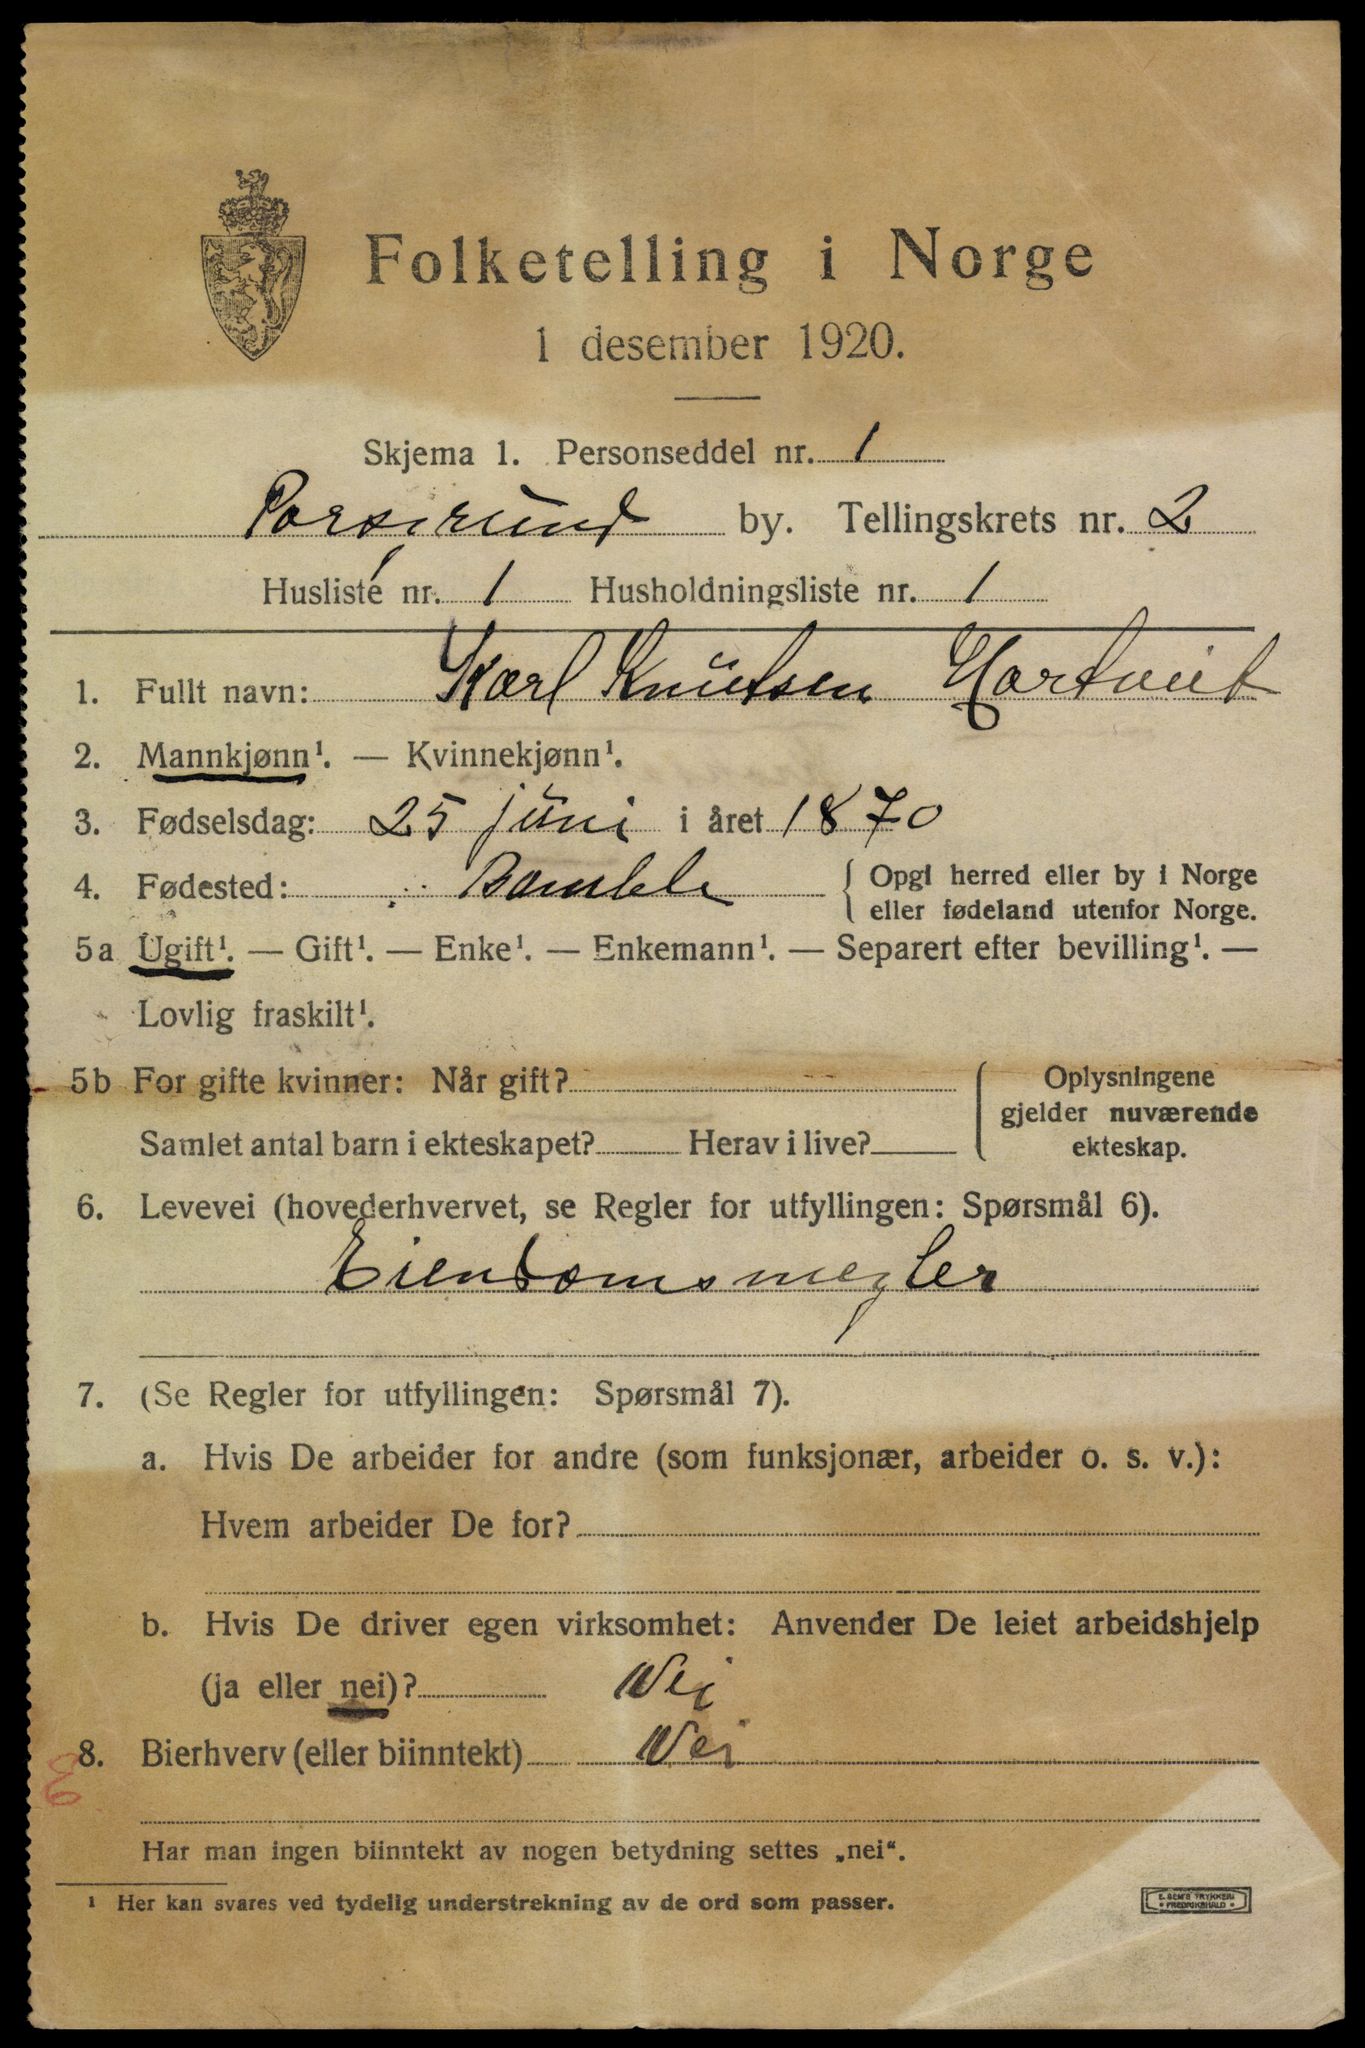 Folketelling i Norge
1 desember 1920.
Skjema 1. Personseddel nr. 1
Porsgrund by. Tellingskrets nr. 2
Husliste nr. 1 Husholdningsliste nr. 1
1. Fullt navn: Karl Knutsen Hartveit
2. Mannkjønn¹. — Kvinnekjønn¹.
3. Fødselsdag: 25 juni i året 1870
4. Fødested: Bamble { Opgi herred eller by i Norge
eller fødeland utenfor Norge.
5a Ugift¹. — Gift¹. — Enke¹. — Enkemann¹. — Separert efter bevilling¹. —
Lovlig fraskilt¹.
5b For gifte kvinner: Når gift?
Samlet antal barn i ekteskapet? Herav i live?
Oplysningene
gjelder nuværende
ekteskap.
6. Levevei (hovederhvervet, se Regler for utfyllingen: Spørsmål 6).
Eiendomsmegler
7. (Se Regler for utfyllingen: Spørsmål 7).
a. Hvis De arbeider for andre (som funksjonær, arbeider o. s. v.):
Hvem arbeider De for?
b. Hvis De driver egen virksomhet: Anvender De leiet arbeidshjelp
(ja eller nei)? Nei
8. Bierhverv (eller biinntekt) Nei
Har man ingen biinntekt av nogen betydning settes „nei“.
¹ Her kan svares ved tydelig understrekning av de ord som passer.
E. SEM'S TRYKKERI
FREDRIKSHALD